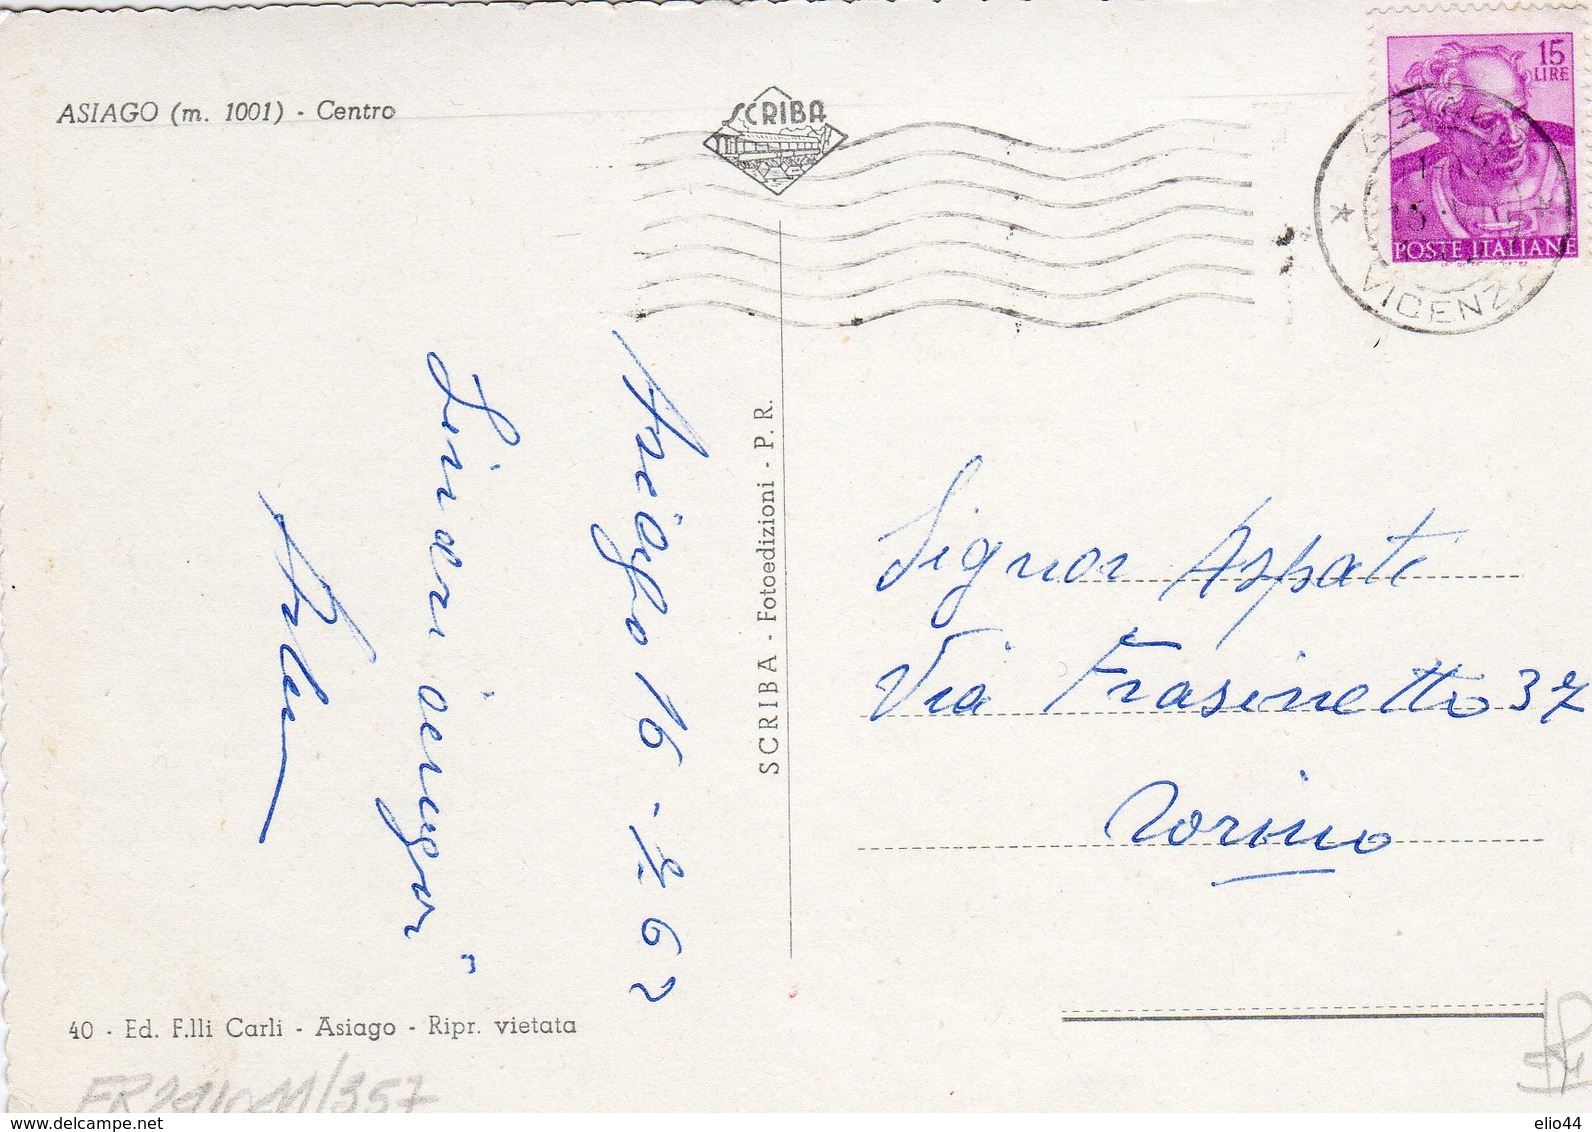 ASIAGO (m. 1001) - Centro
SCRIBA
15
LIRE
POSTE ITALIANE
VICENZA
Asiago 16 - 2 62
Sinceri auguri
SCRIBA - Fotoedizioni - P. R.
Signor Aspati
Via Frasinetto 37
Torino
40 - Ed. F.lli Carli - Asiago - Ripr. vietata
delcampe.net
elio44